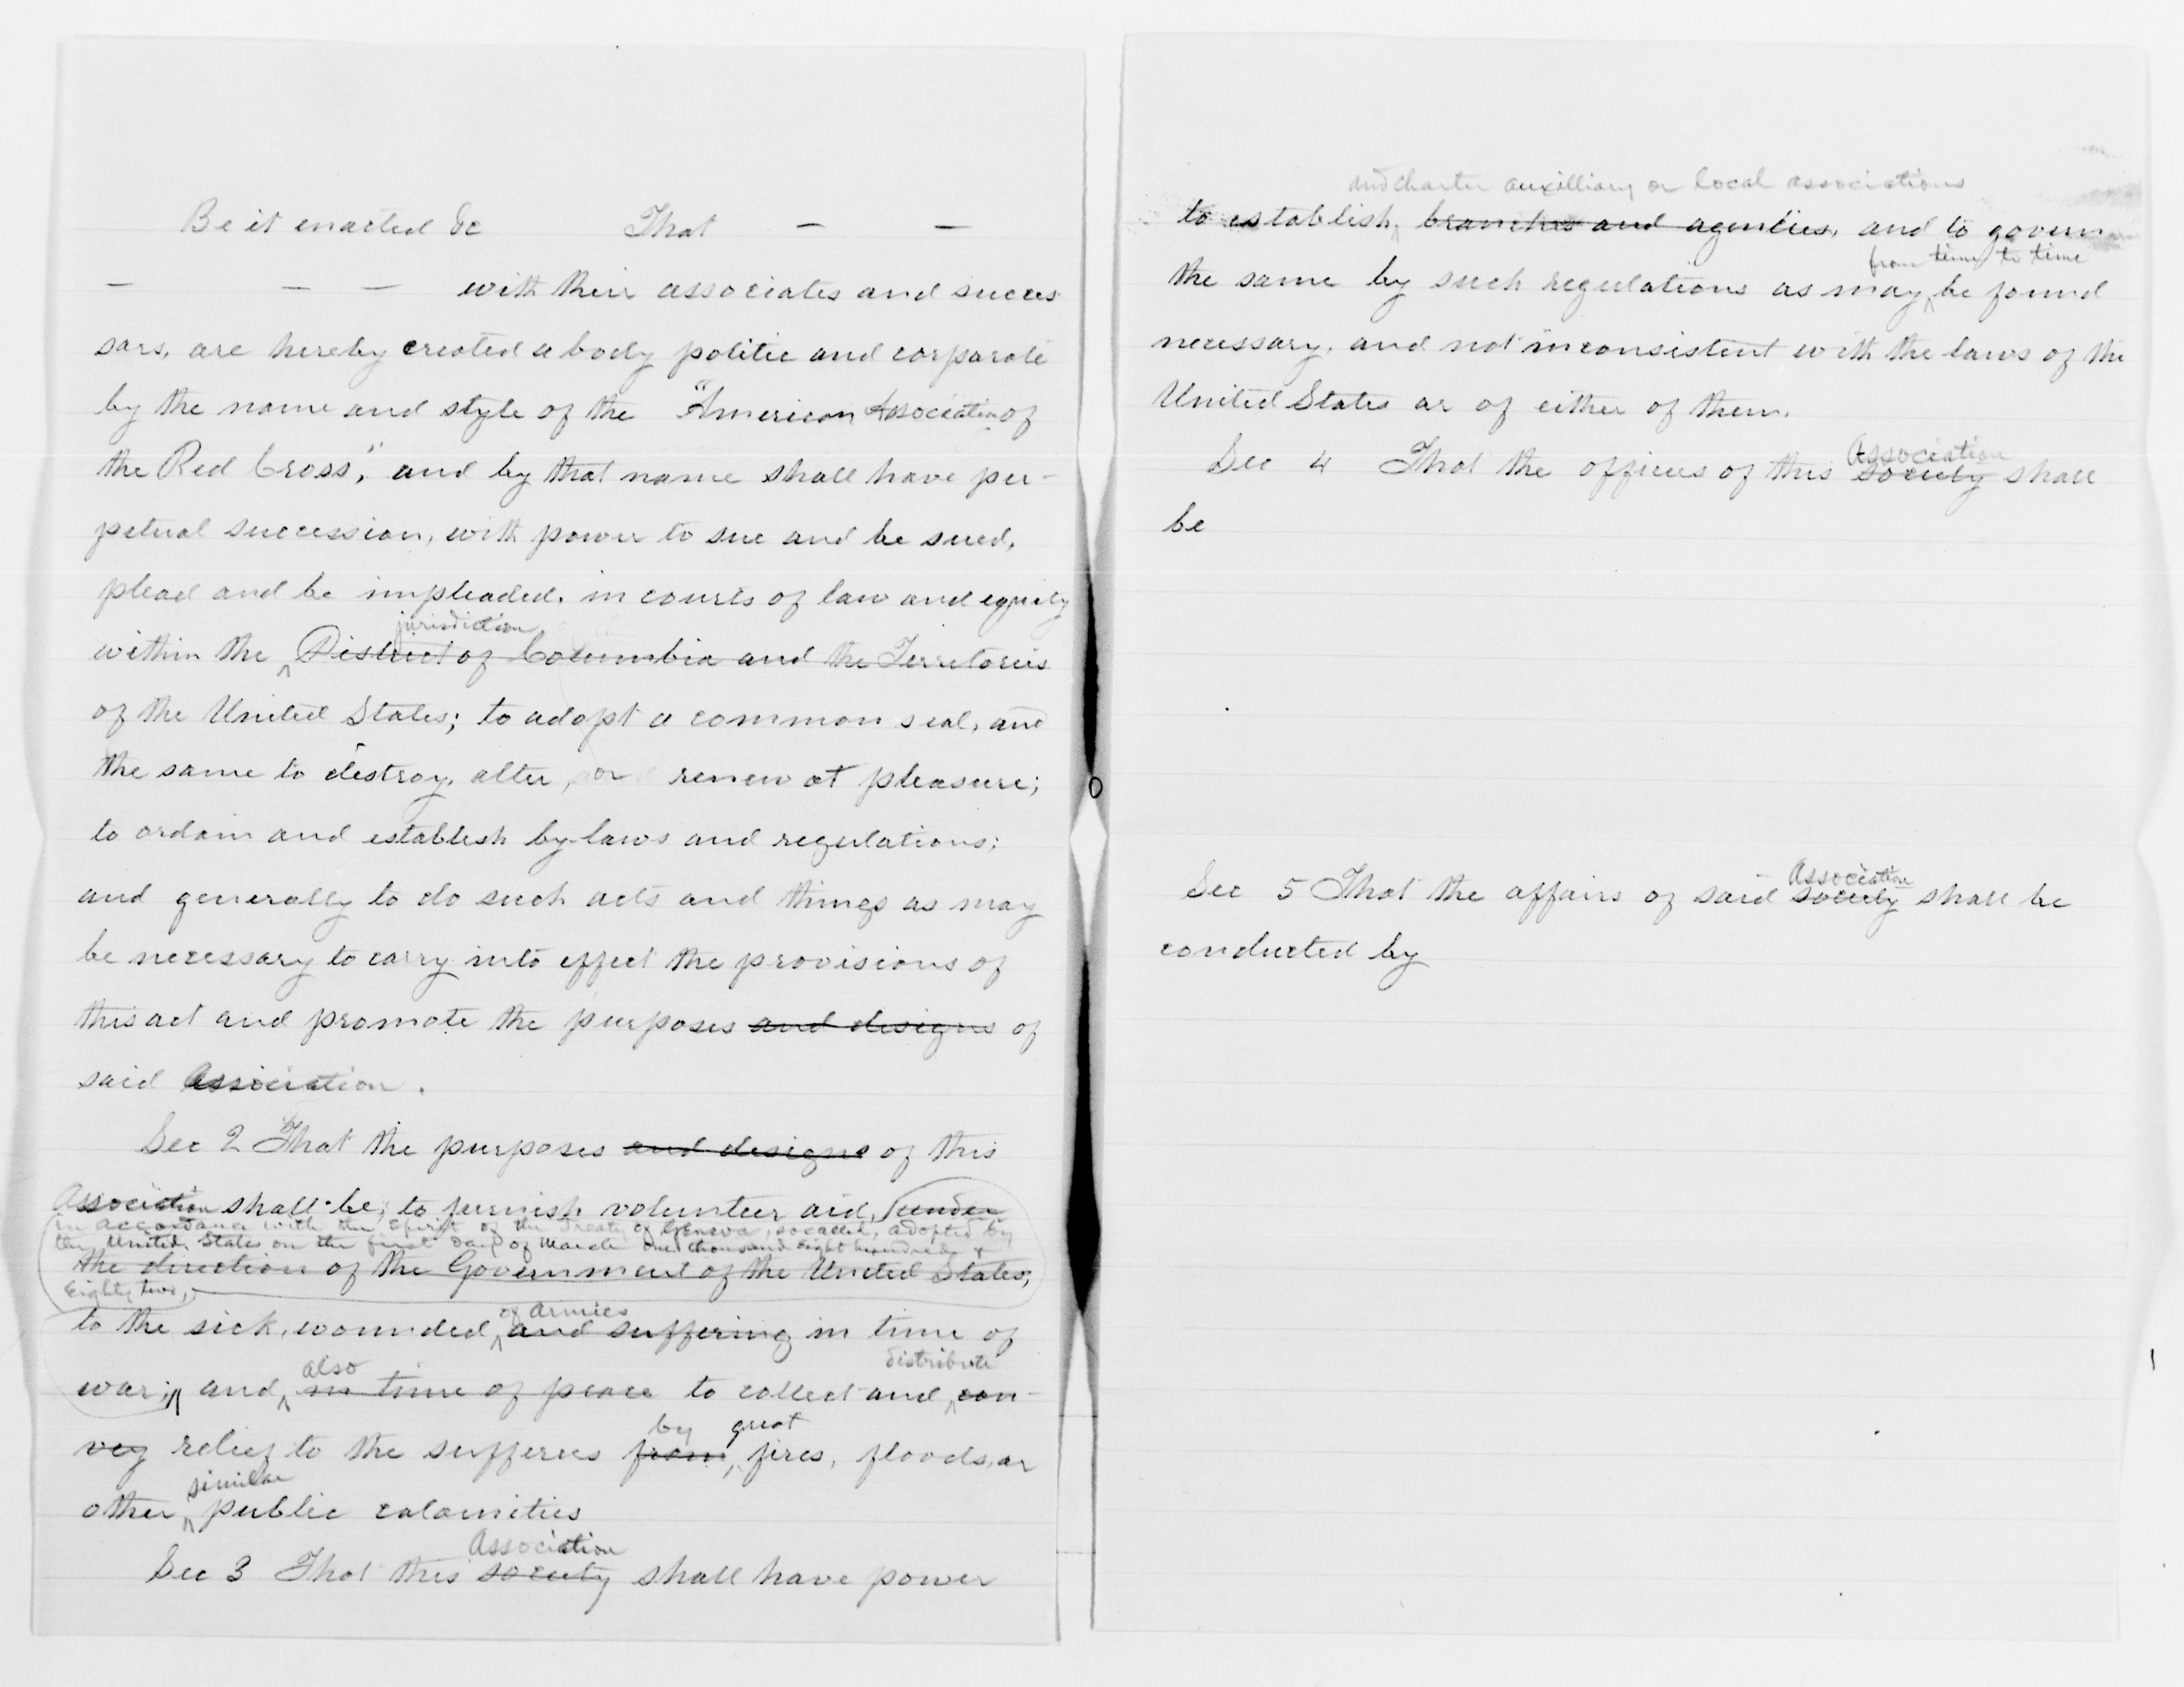 Be it enacted &c That — —
— — — with their associates and succes
sors, are hereby created a body politic and corporate
by the name and style of the "American Association of
the Red Cross", and by that name shall have per-
petual succession, with power to sue and be sued,
plead and be impleaded, in courts of law and equity
jurisdiction
within the District of Columbia and the Territories
of the United States; to adopt a common seal, and
the same to destroy, alter, or renew at pleasure;
to ordain and establish by-laws and regulations;
and generally to do such acts and things as may
be necessary to carry into effect the provisions of
this act and promote the purposes and designs of
said Association.
Sec 2 That the purposes and designs of this
Association shall be, to furnish volunteer aid, under
in accordance with the spirit of the Treaty of Geneva, so called, adopted by
the United States on the first day of March one thousand Eight hundred &
the direction of the Government of the United States,
Eighty two,
of armies
to the sick, wounded, and suffering in time of
also distribute
war; and, in time of peace to collect and con-
by great
vey relief to the sufferers from, fires, floods, or
similar
other public calamities
Association
Sec 3 That this society shall have power
and charter auxilliary or local associations
to establish branches and agencies, and to govern
from time to time
the same by such regulations as may be found
necessary, and not inconsistent with the laws of the
United States or of either of them.
Association
Sec 4 That the officers of this society shall
be
Association
Sec 5 That the affairs of said society shall be
conducted by